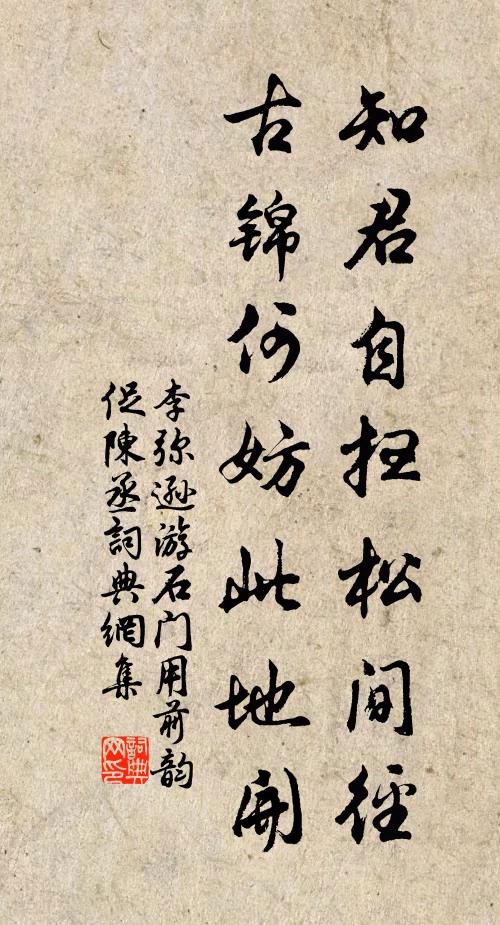 知君自扫松间径
古锦何妨此地开
李弥逊游石门用前韵
促陳丞詞典網集
詞典
网印